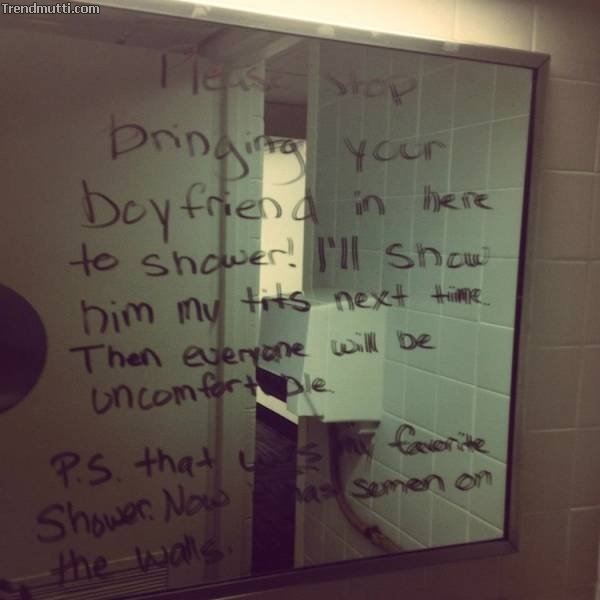 Trendmutti.com
Please stop
bringing your
boyfriend in here
to shower! I'll show
him my tits next time.
Then everyone will be
uncomfortable.
P.S. that was my favorite
Shower. Now it has semen on
the walls.